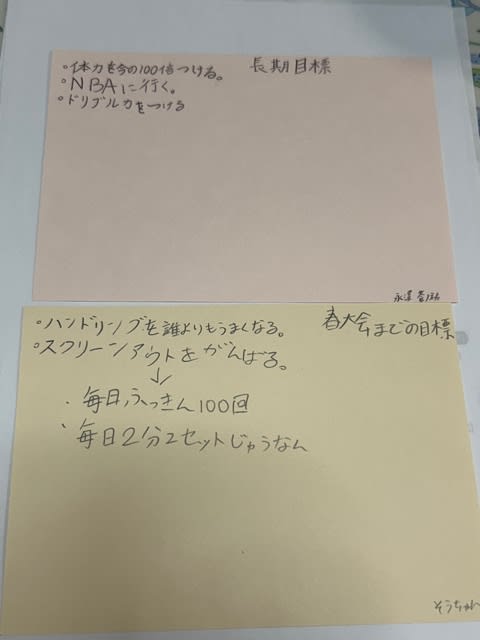 長期目標
・体力を今の100倍つける。
・NBAに行く。
・ドリブル力をつける
永澤
春大会までの目標
・ハンドリングを誰よりもうまくなる。
・スクリーンアウトをがんばる。
↓
・毎日ふっきん100回
・毎日2分2セットじゅうなん
そうちゃん